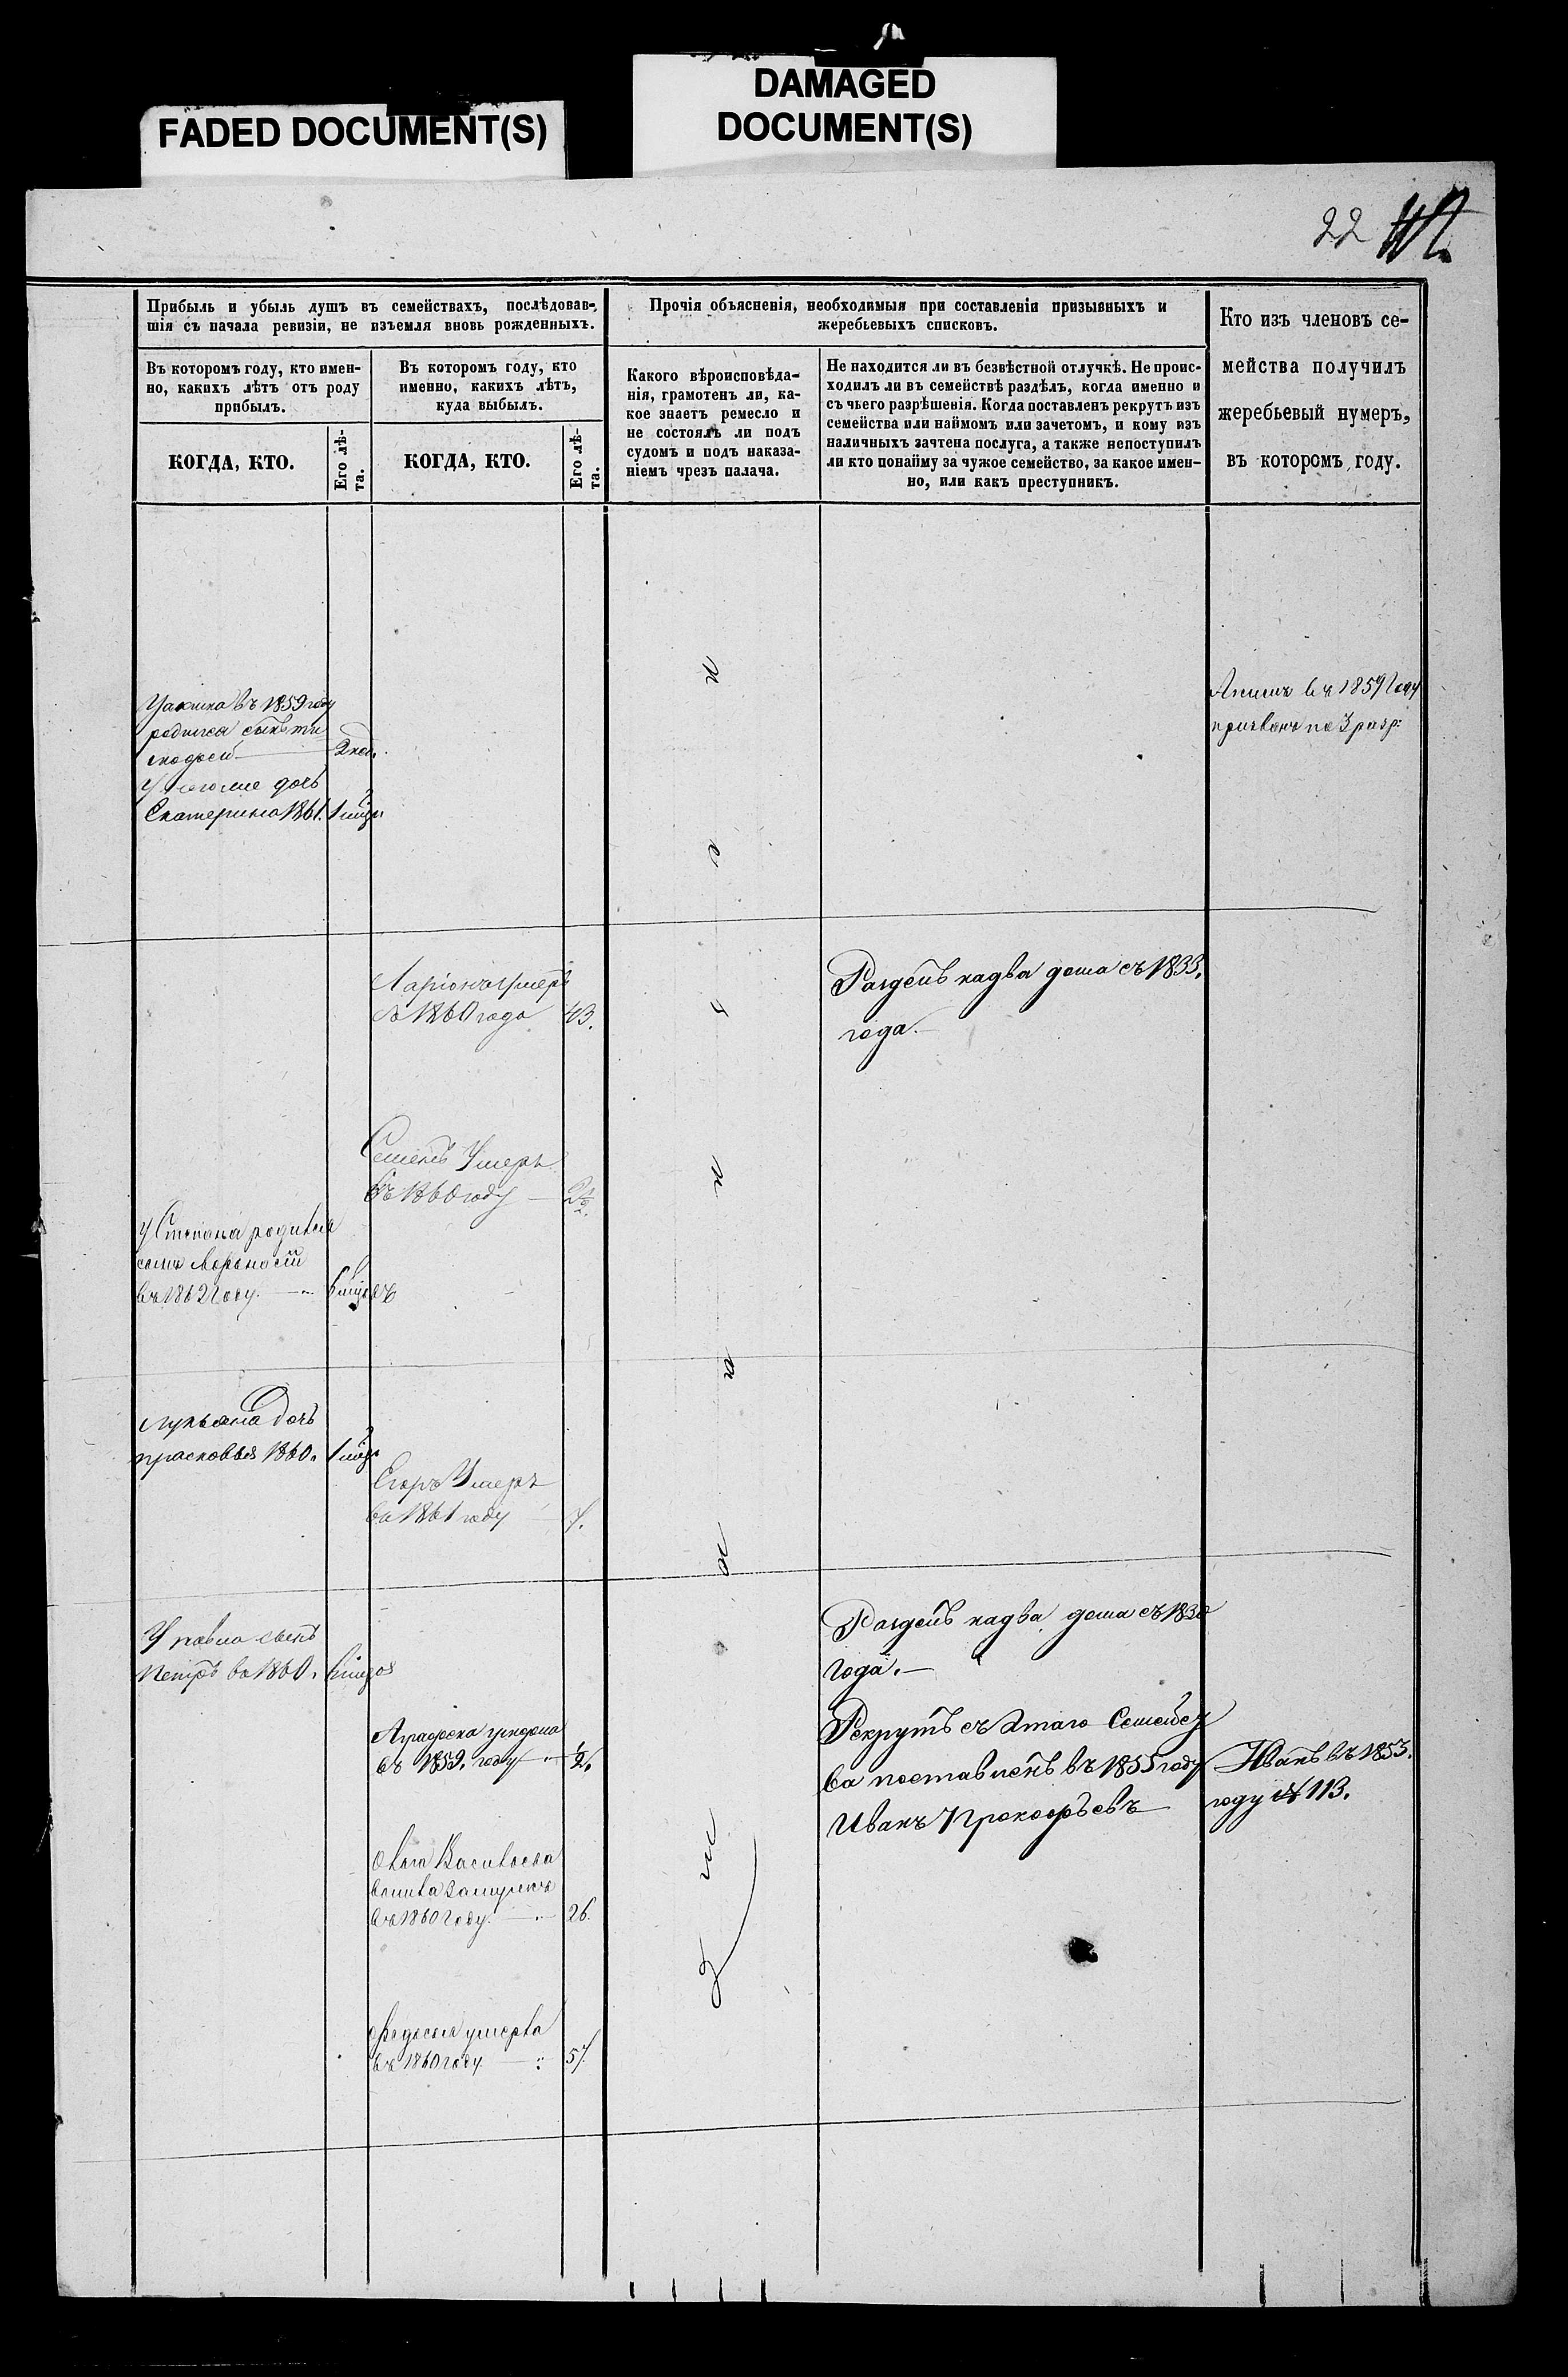 FADED DOCUMENT(S)
DAMAGED
DOCUMENT(S)
22
Прибыль и убыль душъ въ семействахъ, послѣдовав-
шія съ начала ревизіи, не изъемля вновь рожденныхъ.
Прочія объясненія, необходимыя при составленіи призывныхъ и
жеребьевыхъ списковъ.
Кто изъ членовъ се-
мейства получилъ
жеребьевый нумеръ,
въ которомъ году.
Въ которомъ году, кто имен-
но, какихъ лѣтъ отъ роду
прибылъ.
Въ которомъ году, кто
именно, какихъ лѣтъ,
куда выбылъ.
Какого вѣроисповѣда-
нія, грамотенъ ли, ка-
кое знаетъ ремесло и
не состоялъ ли подъ
судомъ и подъ наказа-
ніемъ чрезъ палача.
Не находится ли въ безвѣстной отлучкѣ. Не проис-
ходилъ ли въ семействѣ раздѣлъ, когда именно и
съ чьего разрѣшенія. Когда поставленъ рекрутъ изъ
семейства или наймомъ или зачетомъ, и кому изъ
наличныхъ зачтена послуга, а также непоступилъ
ли кто понайму за чужое семейство, за какое имен-
но, или какъ преступникъ.
КОГДА, КТО.
Его лѣ-
та.
КОГДА, КТО.
Его лѣ-
та.
Уакима въ 1859 году
родился сынъ ти
мофей 2 нед.
У него же дочь
Екатерина 1861. 1 мѣс.
Акимъ въ 1859 году
призванъ по 3 разр:
Ларіонъ умеръ
въ 1860 года 43.
Разделъ надва дома съ 1833.
года.
Семенъ Умеръ
въ 1860 году 2½.
У Степана родился
сынъ
въ 1862 году. 6 мѣсяцъ
Лукьяна дочь
прасковья 1860. 1 мѣс.
Егоръ Умеръ
въ 1861 году 7.
У павла сынъ
Петръ во 1860. 6 мѣс
Разделъ надва дома съ 1830
года.
Аграфена умерла
въ 1859. году ½.
Рекрутъ съ этаго Семейст
ва поставленъ въ 1855 году
Иванъ Прокофьевъ
Иванъ въ 1853.
году № 113.
Васильева
вышла замужъ
въ 1860 году. 26.
Федосья умерла
въ 1860 году 57.